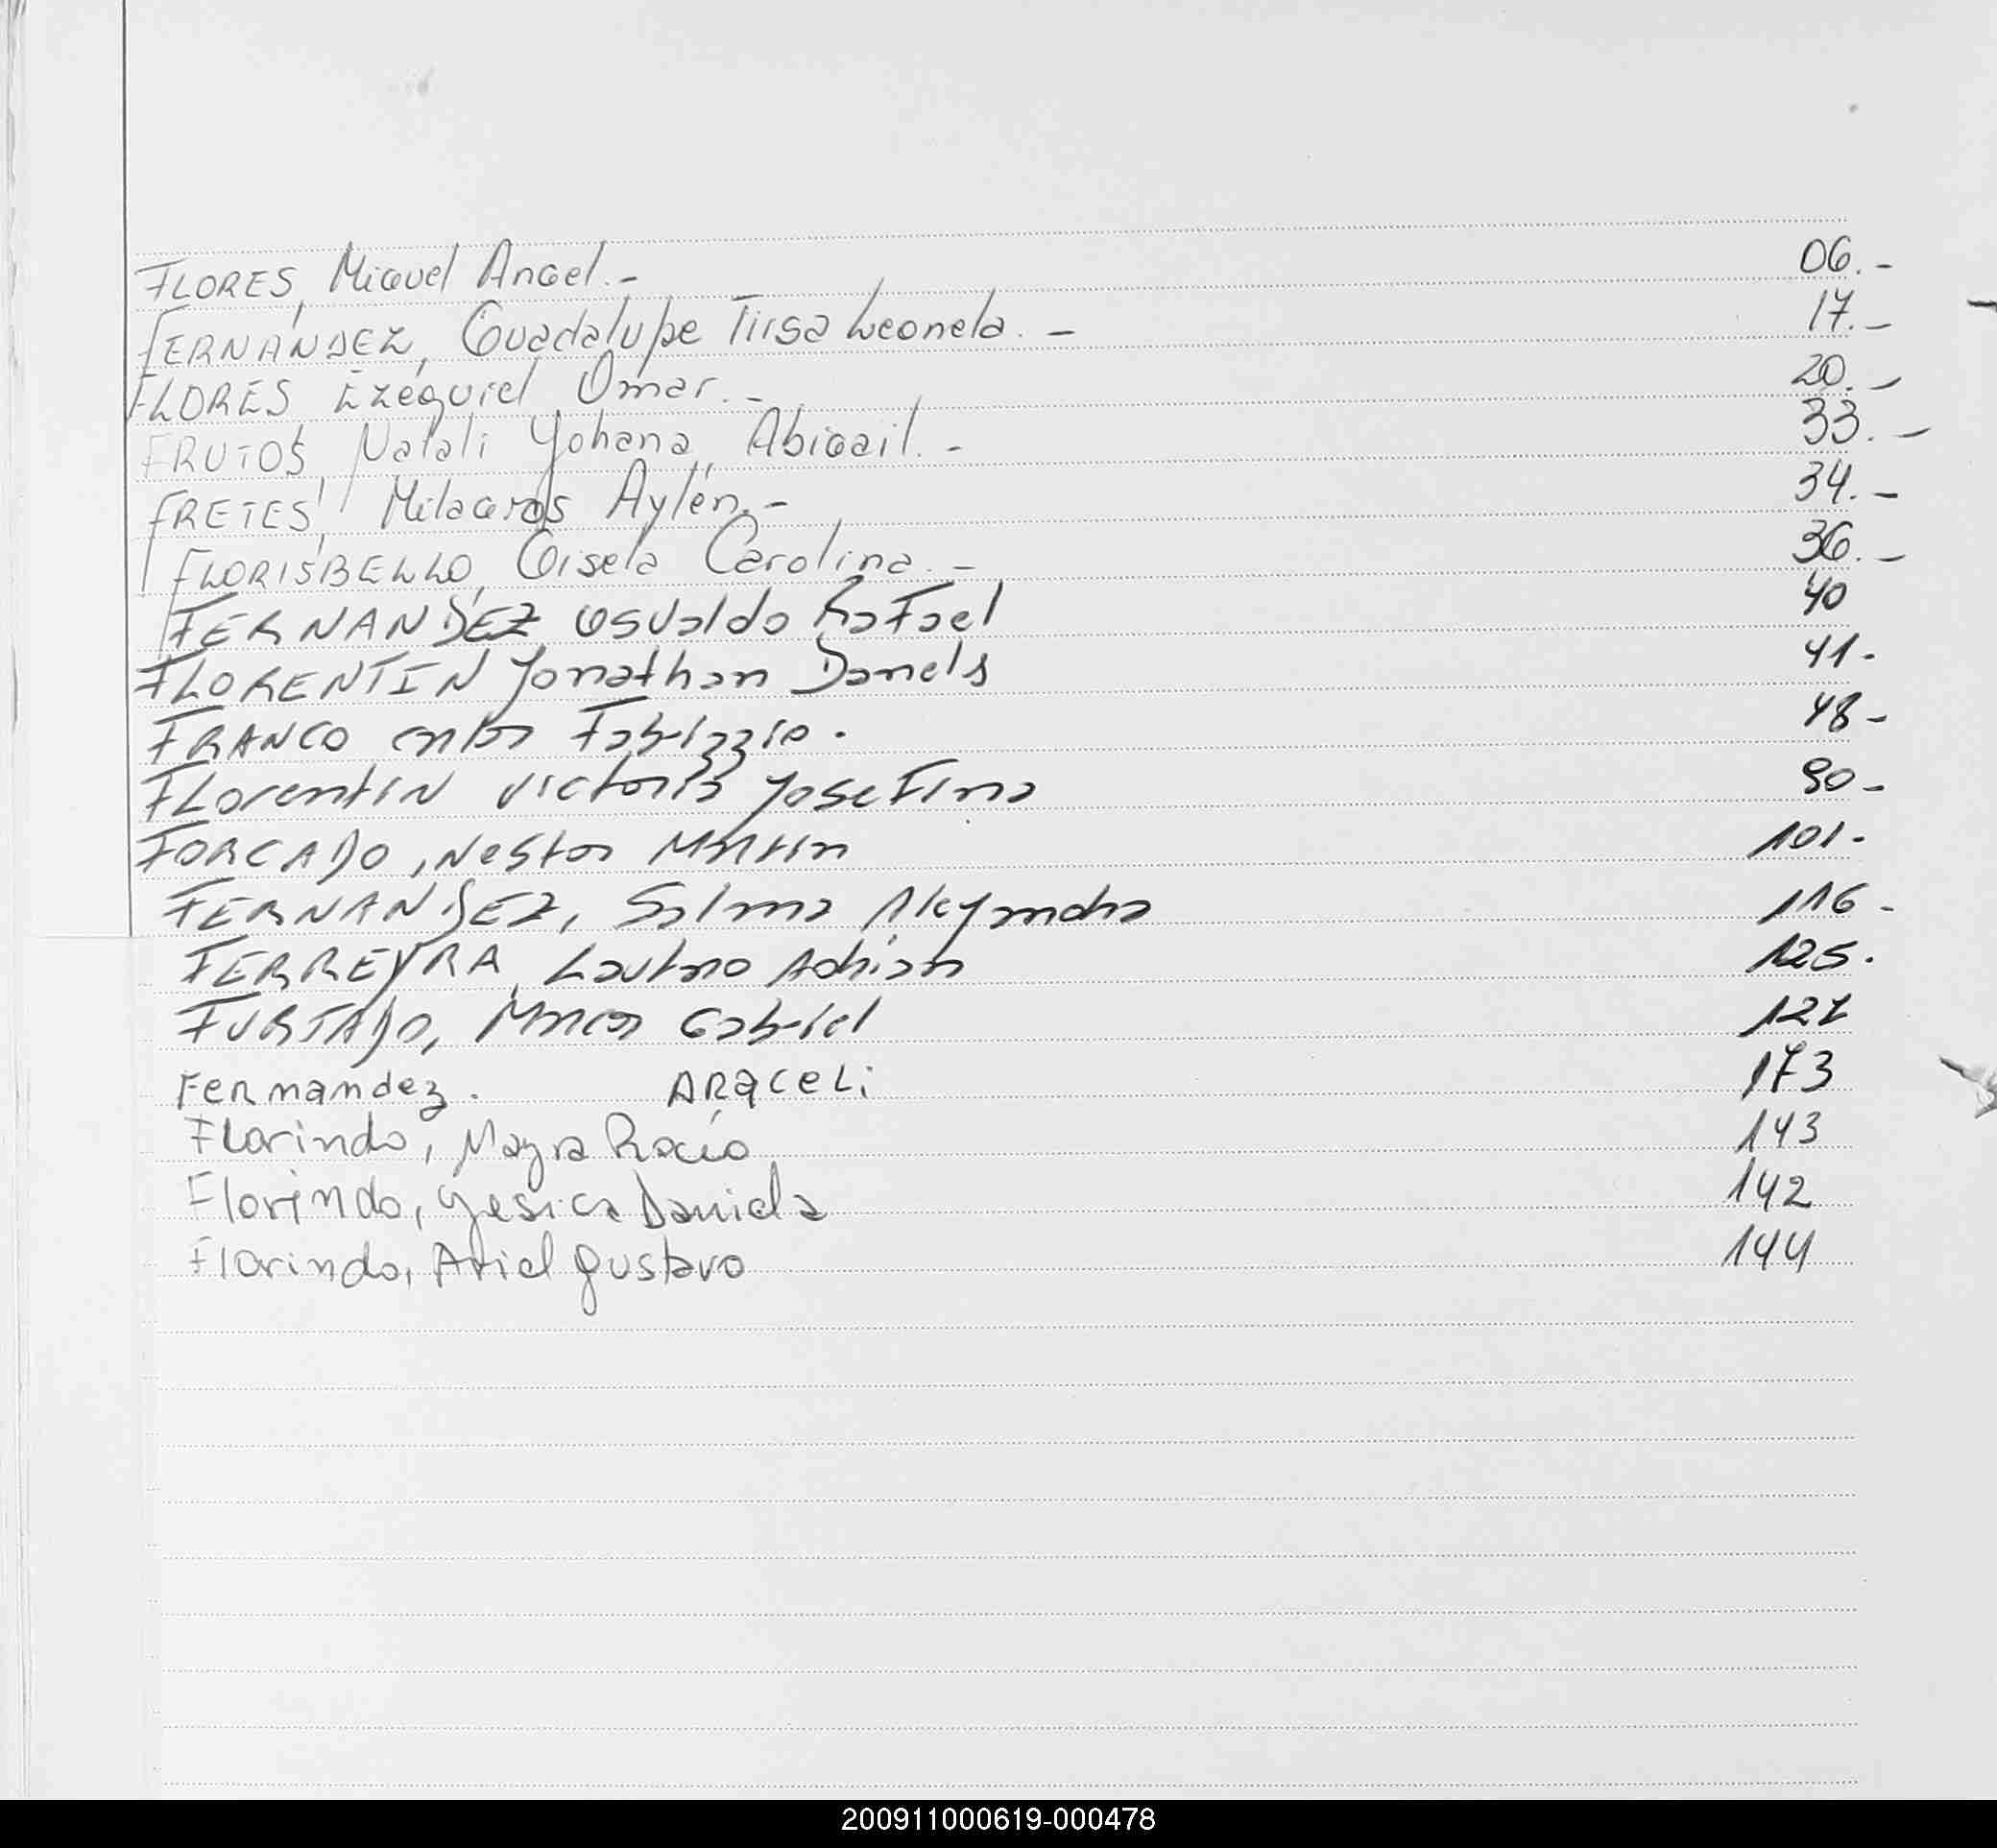 FLORES, Miguel Angel.- 06.-
FERNÁNDEZ, Guadalupe Tirsa Leonela.- 17.-
FLORES Ezequiel Omar.- 20.-
FRUTOS, Natali Yohana, Abigail.- 33.-
FRETES, Milagros Aylén.- 34.-
FLORISBELLO, Gisela Carolina.- 36.-
FERNANDEZ Osvaldo Rafael 40
FLORENTIN Jonathan Daniels 41-
FRANCO Carlos Fabrizzio. 48-
Florentin Victoria Josefina 90-
FORCADO, Nestor Martin 101-
FERNANDEZ, Salma Alejandra 116-
FERREYRA, Lautaro Adrian 125.
FURTADO, Marcos Gabriel 127
Fernandez. Araceli 173
Florindo, Mayra Rocío 143
Florindo, Yesica Daniela 142
Florindo, Ariel Gustavo 144
200911000619-000478